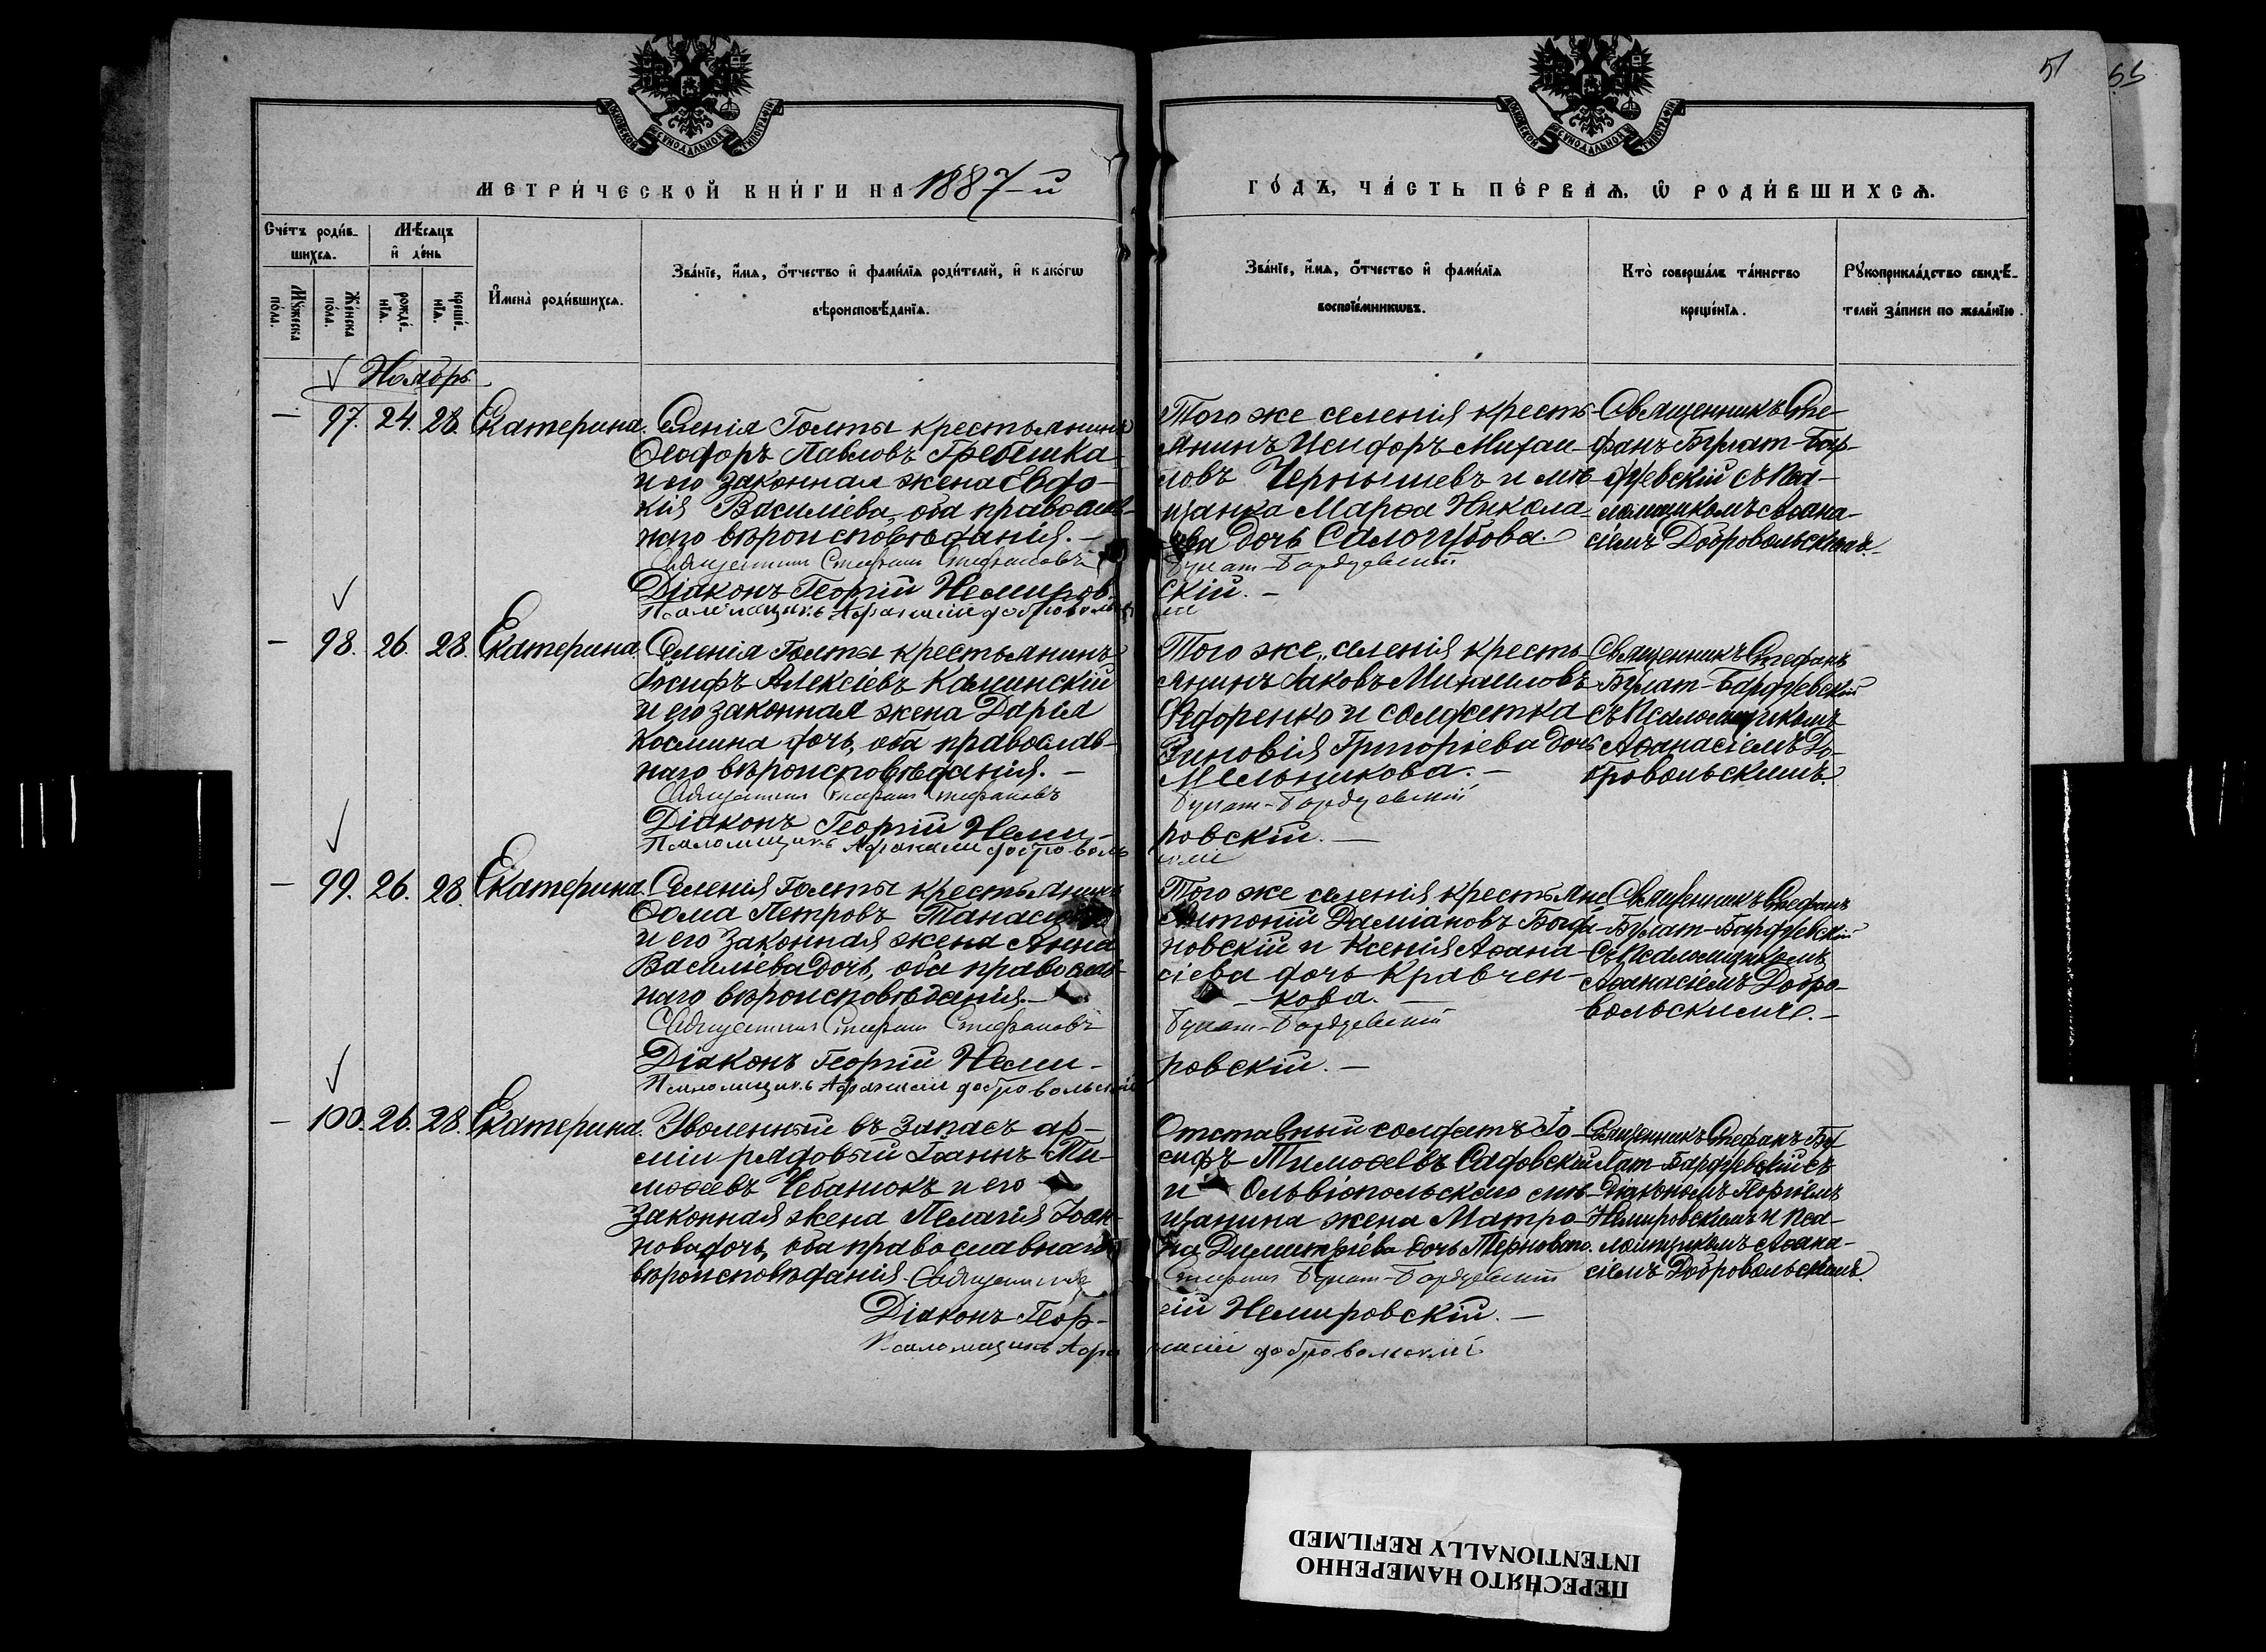 51
55
МОСКОВСКОЙ СѴНОДАЛЬНОЙ ТИПОГРАФІИ
МОСКОВСКОЙ СѴНОДАЛЬНОЙ ТИПОГРАФІИ
МЕТРИ́ЧЕСКОЙ КНИ́ГИ НА 1887-й
ГО́ДЪ, ЧА́СТЬ ПЕ́РВАѦ, Ѡ РОДИ́ВШИХСѦ.
Сче́тъ роди́в-
шихсѧ.
Мꙋ́жеска по́ла.
Же́нска по́ла.
Мѣ́сѧцъ
и҆ де́нь
рожде́-нїѧ.
креще́-нїѧ.
И҆мена̀ роди́вшихсѧ.
Зва́нїе, и҆́мѧ, о҆́тчество и҆ фами́лїѧ роди́телей, и҆ како́гѡ
вѣроисповѣ́данїѧ.
Зва́нїе, и҆́мѧ, о҆́тчество и҆ фами́лїѧ
воспрїе́мникѡвъ.
Кто̀ соверша́лъ та́инство
креще́нїѧ.
Рꙋкоприкла́дство свидѣ́-
телей за́писи по жела́нїю.
Ноябрь.
— 97. 24. 28. Екатерина.
Селенія Голты крестьянинъ
Ѳеодоръ Павловъ Гребешка
и его законная жена Евдо-
кія Василіева, оба православ-
наго вѣроисповѣданія. —
Священникъ Стефанъ Стефановъ
Діаконъ Георгій Немиров-
Псаломщикъ Афанасий Добровольс
Того же селенія кресть-
янинъ Исидоръ Михаи-
ловъ Чернышевъ и мѣ-
щанка Марѳа Никола-
ева дочь Самогубова.
Булат-Бардуевский
скій. —
Священникъ Сте-
фанъ Булат-Бар-
дуевскій съ Пса-
ломщикомъ Аѳана-
сіемъ Добровольскимъ.
— 98. 26. 28. Екатерина.
Селенія Голты крестьянинъ
Іосифъ Алексіевъ Каминскій
и его законная жена Дарія
Космина дочь, оба православ-
наго вѣроисповѣданія. —
Священникъ Стефанъ Стефановъ
Діаконъ Георгій Неми-
Псаломщикъ Афанасий Доброволь
Того же селенія кресть-
янинъ Іаковъ Михаиловъ
Федоренко и солдатка
Зиновія Григоріева дочь
Мельникова. —
Булат-Бардуевский
ровскій. —
Священникъ Стефанъ
Булат-Бардуевскій
съ Псаломщикомъ
Аѳанасіемъ До-
бровольскимъ.
— 99. 26. 28. Екатерина.
Селенія Голты крестьянинъ
Ѳома Петровъ
и его законная жена Анна
Василіева дочь, оба православ-
наго вѣроисповѣданія. —
Священникъ Стефанъ Стефановъ
Діаконъ Георгій Неми-
Псаломщикъ Афанасий Добровольский
Того же селенія крестьяне
Антоній Даміановъ Богда-
новскій и Ксенія Аѳана-
сіева дочь Кравчен-
кова. —
Булат-Бардуевский
ровскій. —
Священникъ Стефанъ
Булат-Бардуевскій
съ Псаломщикомъ
Аѳанасіемъ Добро-
вольскимъ. —
— 100. 26. 28. Екатерина.
Уволенный въ запасъ ар-
міи рядовый Іоаннъ Ти-
моѳеевъ Чебанюкъ и его
законная жена Пелагія Іоан-
нова дочь, оба православнаго
вѣроисповѣданія. Священникъ
Діаконъ Геор-
Псаломщикъ Афа
Отставный солдатъ Іо-
сифъ Тимоѳеевъ Садовскій
и Ольвіопольскаго мѣ-
щанина жена Матро-
на Димитріева дочь Терноваго.
Стефанъ Булат-Бардуевский
гій Немировскій. —
насий Добровольский
Священникъ Стефанъ Бу-
лат-Бардуевскій съ
Діакономъ Георгіемъ
Немировскимъ и Пса-
ломщикомъ Аѳана-
сіемъ Добровольскимъ.
ПЕРЕСНЯТО НАМЕРЕННО
INTENTIONALLY REFILMED